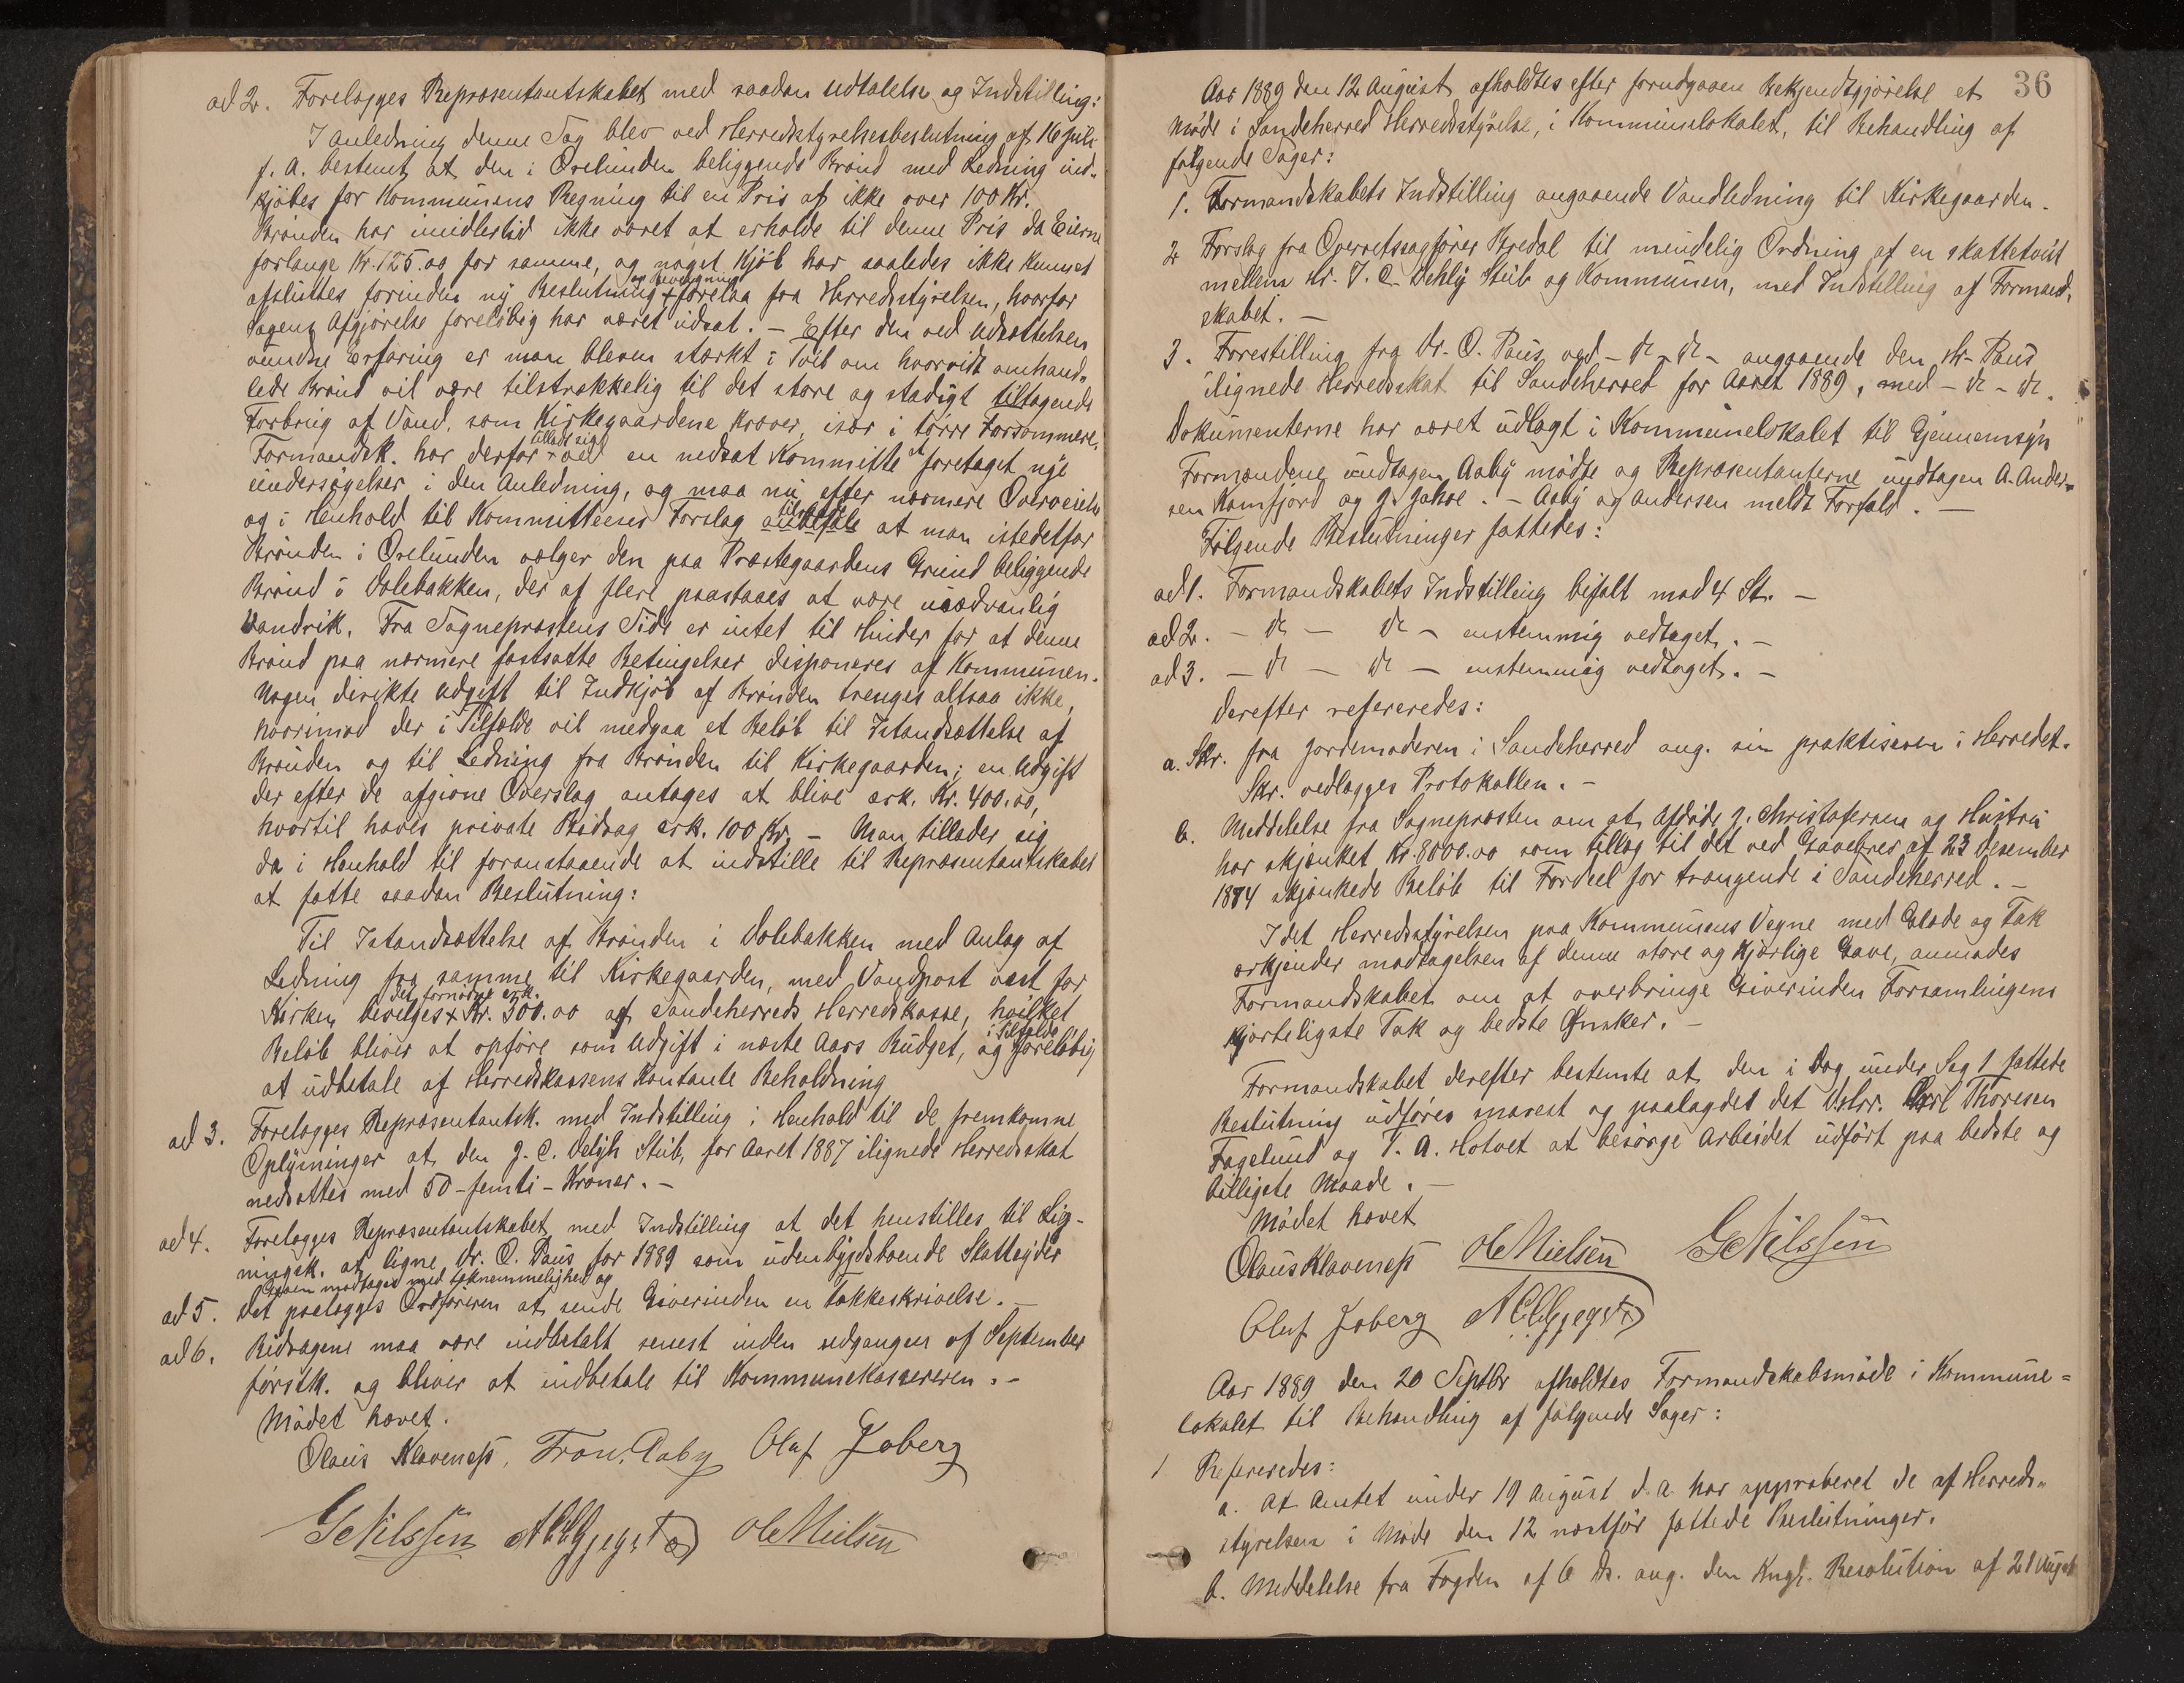 ad 2. Forelægges Repræsentantskabet med saadan Udtalelse og Indstilling:
I anledning denne Sag blev ved Herredsstyrelsesbeslutning af 16 juli
f. A. bestemt at den i Orelunden beliggende Brønd med Ledning ind-
kjøbes for Kommunens Regning til en Pris af ikke over 100 Kr.
Brønden har imidlertid ikke været at erholde til denne Pris da Eierne
forlange Kr. 125.00 for samme, og noget Kjøb har saaledes ikke kunnet
og Bevilgning
afsluttes forinden ny Beslutning + forelaa fra Herredsstyrelsen, hvorfor
Sagens Afgjørelse foreløbig har været udsat. – Efter den ved Udsættelsen
vundne Erfaring er man bleven stærkt i Tvil om hvorvidt omhand-
lede Brønd vil være tilstrækkelig til det store og stadigt tiltagende
Forbrug af Vand, som Kirkegaardene kræver, især i tørre Forsommere.
Formandsk. har derfor ved en nedsat Kommitte foretaget nye
undersøgelser i den Anledning, og maa nu efter nærmere Overveielse
tillade sig at
og i Henhold til Kommitteens Forslag anbefale at man istedetfor
Brønden i Orelunden vælger den paa Præstegaardens Grund beliggende
Brønd i Dolebakken, der af flere paastaaes at være uædvanlig
Vandrik. Fra Sognepræstens Side er intet til Hinder for at denne
Brønd paa nærmere fastsatte Betingelser disponeres af Kommunen.
Nogen dirikte Udgift til Indkjøb af Brønden trenges altsaa ikke,
hvorimod der i Tilfælde vil medgaa et Beløb til Istandsættelse af
Brønden og til Ledning fra Brønden til Kirkegaarden; en Udgift
der efter de afgivne Overslag antages at blive crk. Kr. 400.00,
hvortil haves private Bidrag crk. 100 Kr. – Man tillader sig
da i Henhold til foranstaaende at indstille til Repræsentantskabet
at fatte saadan Beslutning:
Til Istandsættelse af Brønden i Dolebakken med Anlag af
Ledning fra samme til Kirkegaarden, med Vandpost vest for
det fornødne crk.
Kirken bevilges + Kr. 300.00 af Sandeherreds Herredskasse, hvilket
i Tilfælde
Beløb bliver at opføre som Udgift i næste Aars Budget, og foreløbig
at udbetale af Herredskassens Kontante Beholdning
ad 3. Forelægges Repræsentantsk. med Indstilling i Henhold til de fremkomne
Oplysninger at den J. C. Dehly Stub, for Aaret 1887 ilignede Herredsskat
nedsættes med 50 – femti – Kroner. –
ad 4. Forelægges Repræsentantskabet med Indstilling at det henstilles til Lig-
ningsk. at ligne Dr. O. Paus for 1889 som udenbygdsboende Skatteyder
Gaven modtages med taknemmelighed og
ad 5. Det paalægges Ordføreren at sende Giverinden en Takkeskrivelse. –
ad 6. Bidragene maa være indbetalt senest inden udgangen af September
førstk. og bliver at indbetale til Kommunekassereren. –
Mødet hævet.
Olaus Klaveness, Frantz Aaby Oluf Joberg
G Nilssen Ole Nielsen
36
Aar 1889 den 12 August afholdtes efter forudgaaen Bekjendtgjørelse et
Møde i Sandeherred Herredsstyrelse, i Kommunelokalet, til Behandling af
følgende Sager:
1. Formandskabets Indstilling angaaende Vandledning til Kirkegaarden.
2 Forslag fra Overretssagfører Bredal til mindelig Ordning af en skattetvist
mellem Hr. J. C. Dehly Stub og Kommunen, med Indstilling af Formand-
skabet. –
3. Forestilling fra Dr. O. Paus ved – do – do – angaaende den Hr. Paus
ilignede Herredsskat til Sandeherred for Aaret 1889, med – do – do.
Dokumenterne har været udlagt i Kommunelokalet til Gjennemsyn
Formændene undtagen Aaby mødte og Repræsentanterne undtagen A. Ander-
sen Kamfjord og J. Jahre. – Aaby og Andersen meldt Forfald. –
Følgende Beslutninger fattedes:
ad 1. Formandskabets Indstilling bifalt mod 4 St. –
ad 2. – do – do – enstemmig vedtaget. –
ad 3. – do – do – enstemmig vedtaget. –
Derefter refereredes:
a. Skr. fra Jordemoderen i Sandeherred ang. sin praktiseren i Herredet.
Skr. vedlægges Protokollen. –
b. Meddelelse fra Sognepræsten om at Afdøde J. Christofersen og Hustru
har skjænket Kr. 8000.00 som tillæg til det ved Gavebrev af 23 Desember
1884 skjænkede Beløb til Fordeel for trængende i Sandeherred. –
Idet Herredsstyrelsen paa Kommunens Vegne med Glæde og Tak
erkjender modtagelsen af denne store og kjærlige Gave, anmodes
Formandskabet om at overbringe Giverinden Forsamlingens
hjerteligste Tak og bedste Ønsker. –
Formandskabet derefter bestemte at den i Dag under Sag 1 fattede
Beslutning udføres snarest og paalagdes det DHrr. Carl Thoresen
Fagelund og T. A. Hotvet at besørge Arbeidet udført paa bedste og
billigste Maade. –
Mødet hævet
Olaus Klaveness Ole Nielsen G Nilssen
Oluf Joberg
Aar 1889 den 20 Septbr afholdtes Formandskabsmøde i Kommune=
lokalet til Behandling af følgende Sager:
1 Refereredes:
a. At Amtet under 19 August d. a. har approberet de af Herreds-
styrelsen i Møde den 12 næstfør fattede Beslutninger.
b. Meddelelse fra Fogden af 6 ds. ang. den Kngl. Resolution af 21 August